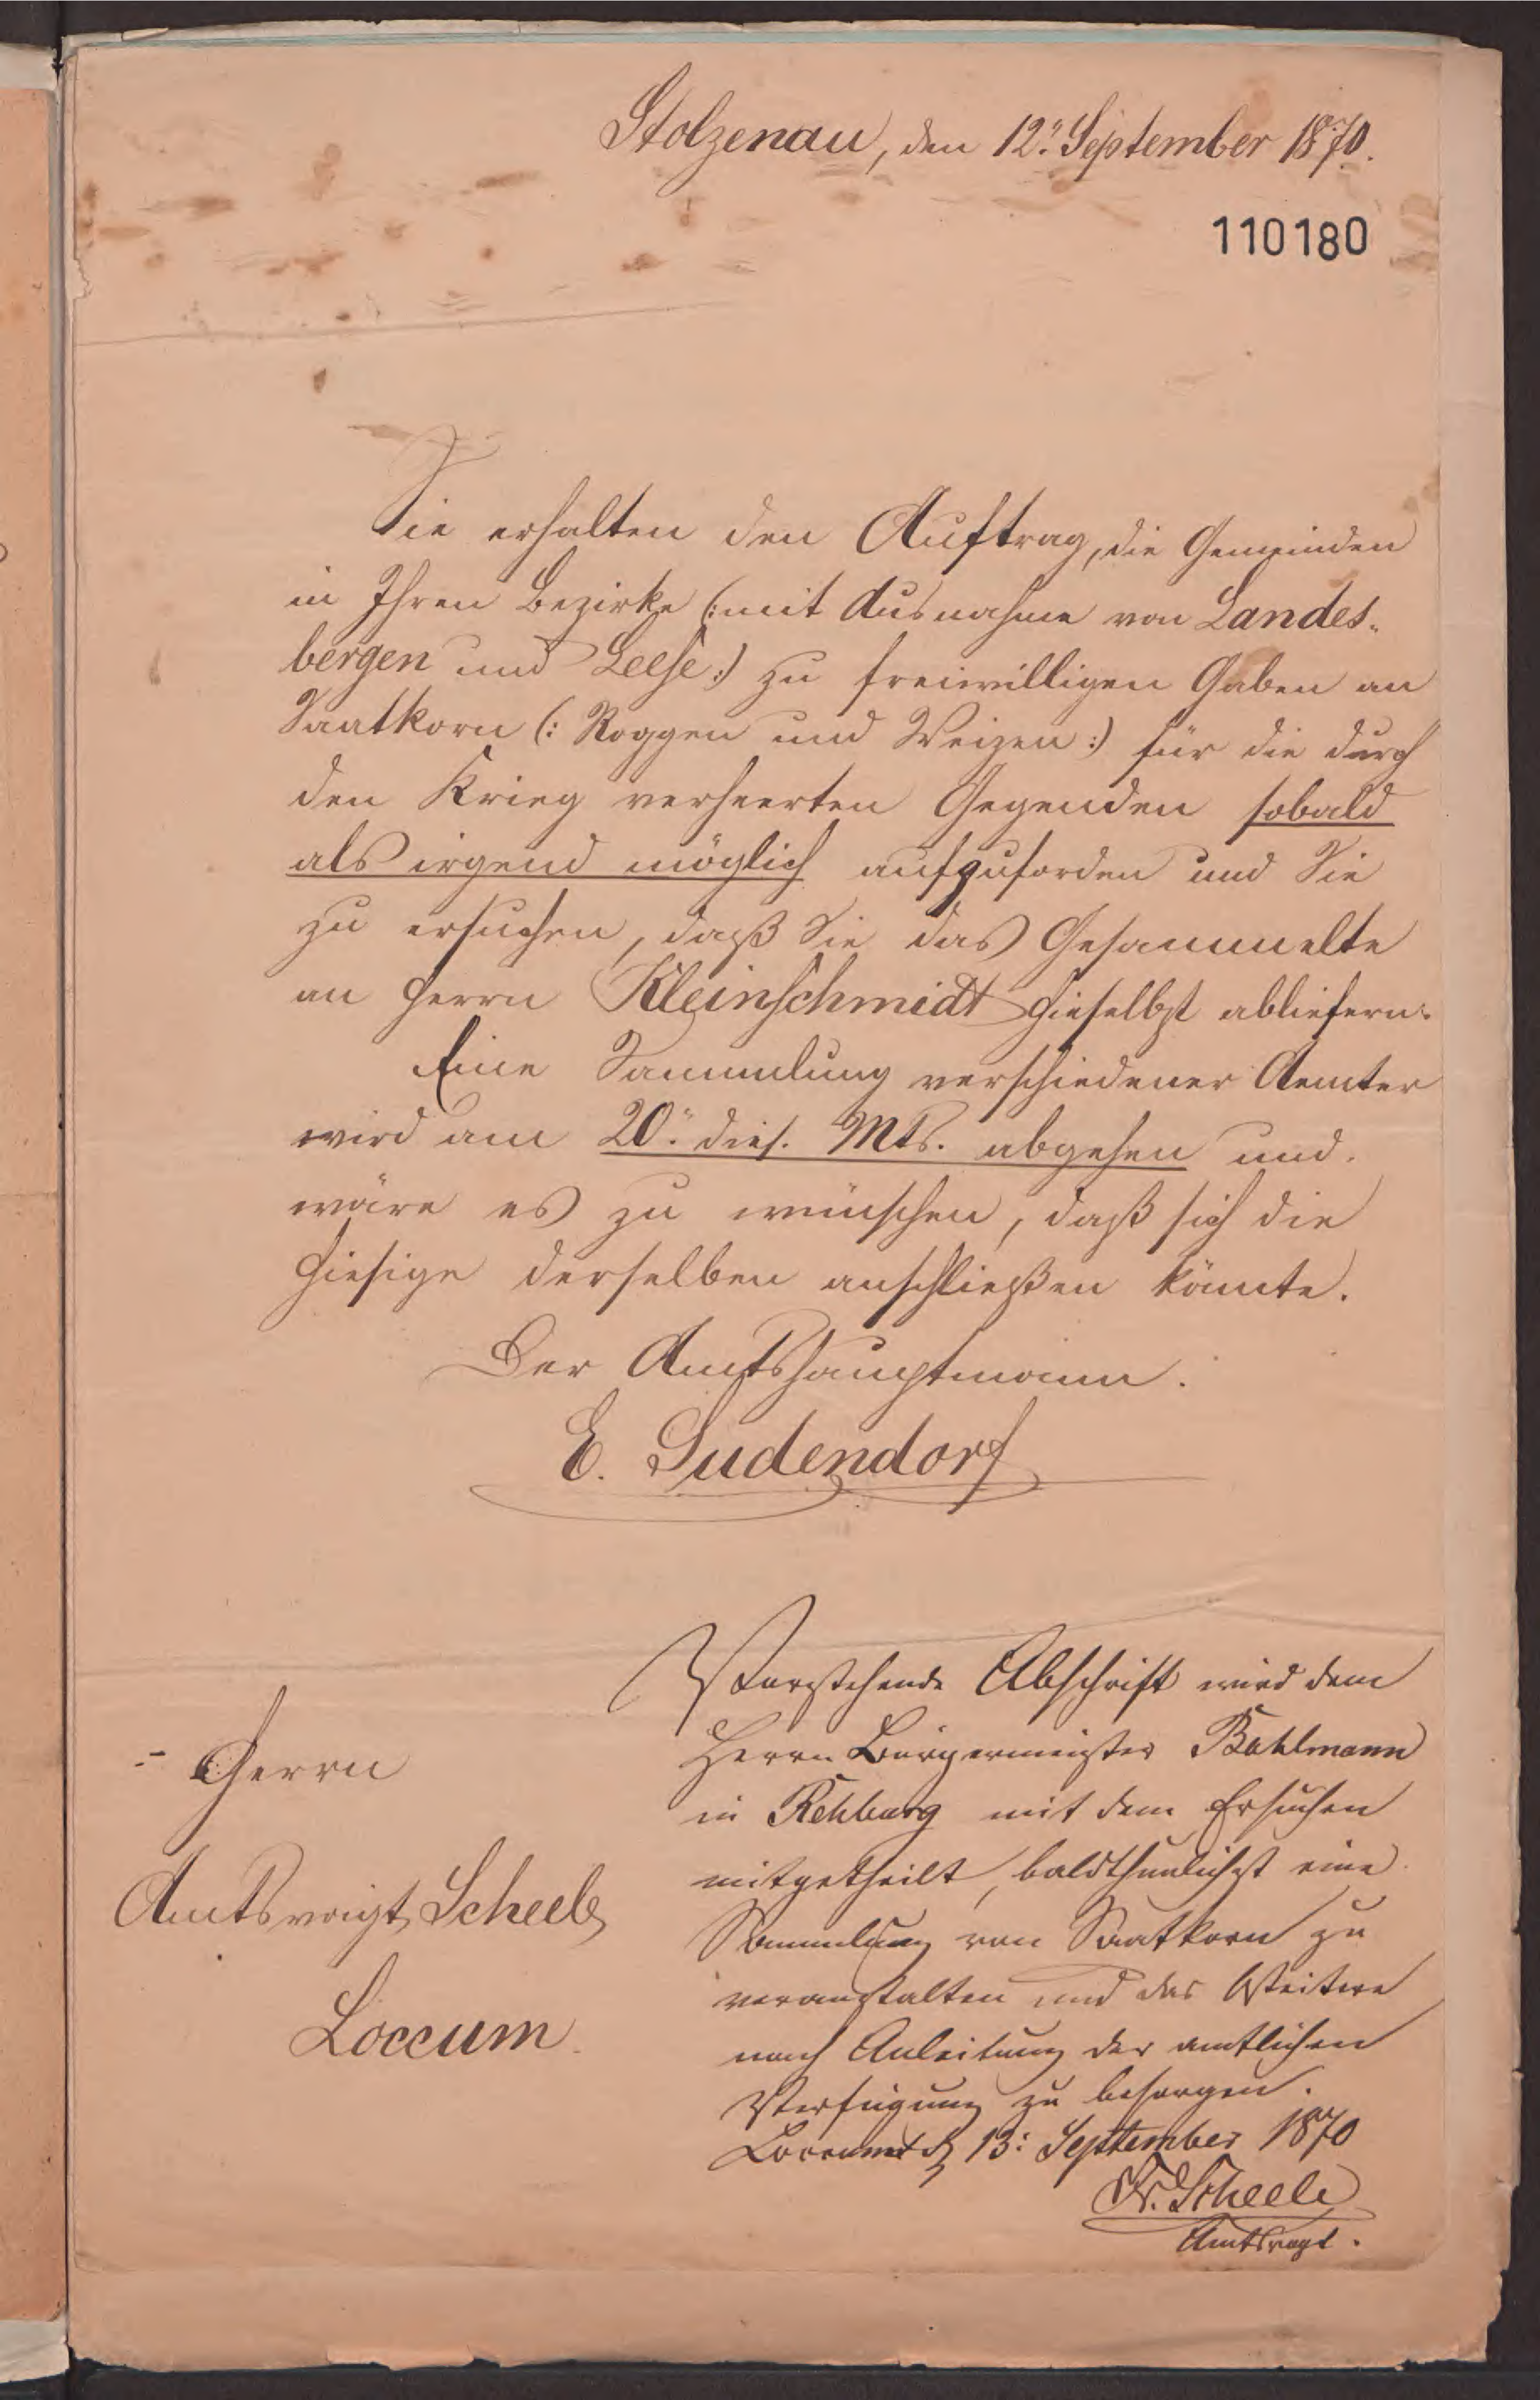 Stolzenau, den 12. September 1870.
110180
Sie erhalten den Auftrag, die Gemeinden
in Ihren Bezirke (: mit Ausnahme von Landes-
bergen und Leese :) zu freiwilligen Gaben an
Saatkorn (: Roggen und Weizen :) für die durch
den Krieg verheerten Gegenden sobald
als irgend möglich aufzufordern und Sie
zu ersuchen, daß Sie das Gesammelte
an Herrn Kleinschmidt hieselbst abliefern.
Eine Sammlung verschiedener Aemter
wird am 20. dies. Mts. abgehen und
wäre es zu wünschen, daß sich die
hiesige derselben anschließen könnte.
Der Amtshauptmann.
E. Sudendorf
Herrn
Amtsvoigt Scheele
Loccum
Vorstehende Abschrift wird dem
Herrn Bürgermeister Bahlmann
in Rehburg mit dem Ersuchen
mitgetheilt, baldthunlichst eine
Sammlung von Saatkorn zu
veranstalten und das Weitere
nach Anleitung der amtlichen
Verfügung zu besorgen.
Loccum d 13. September 1870
Scheele
Amtsvogt.